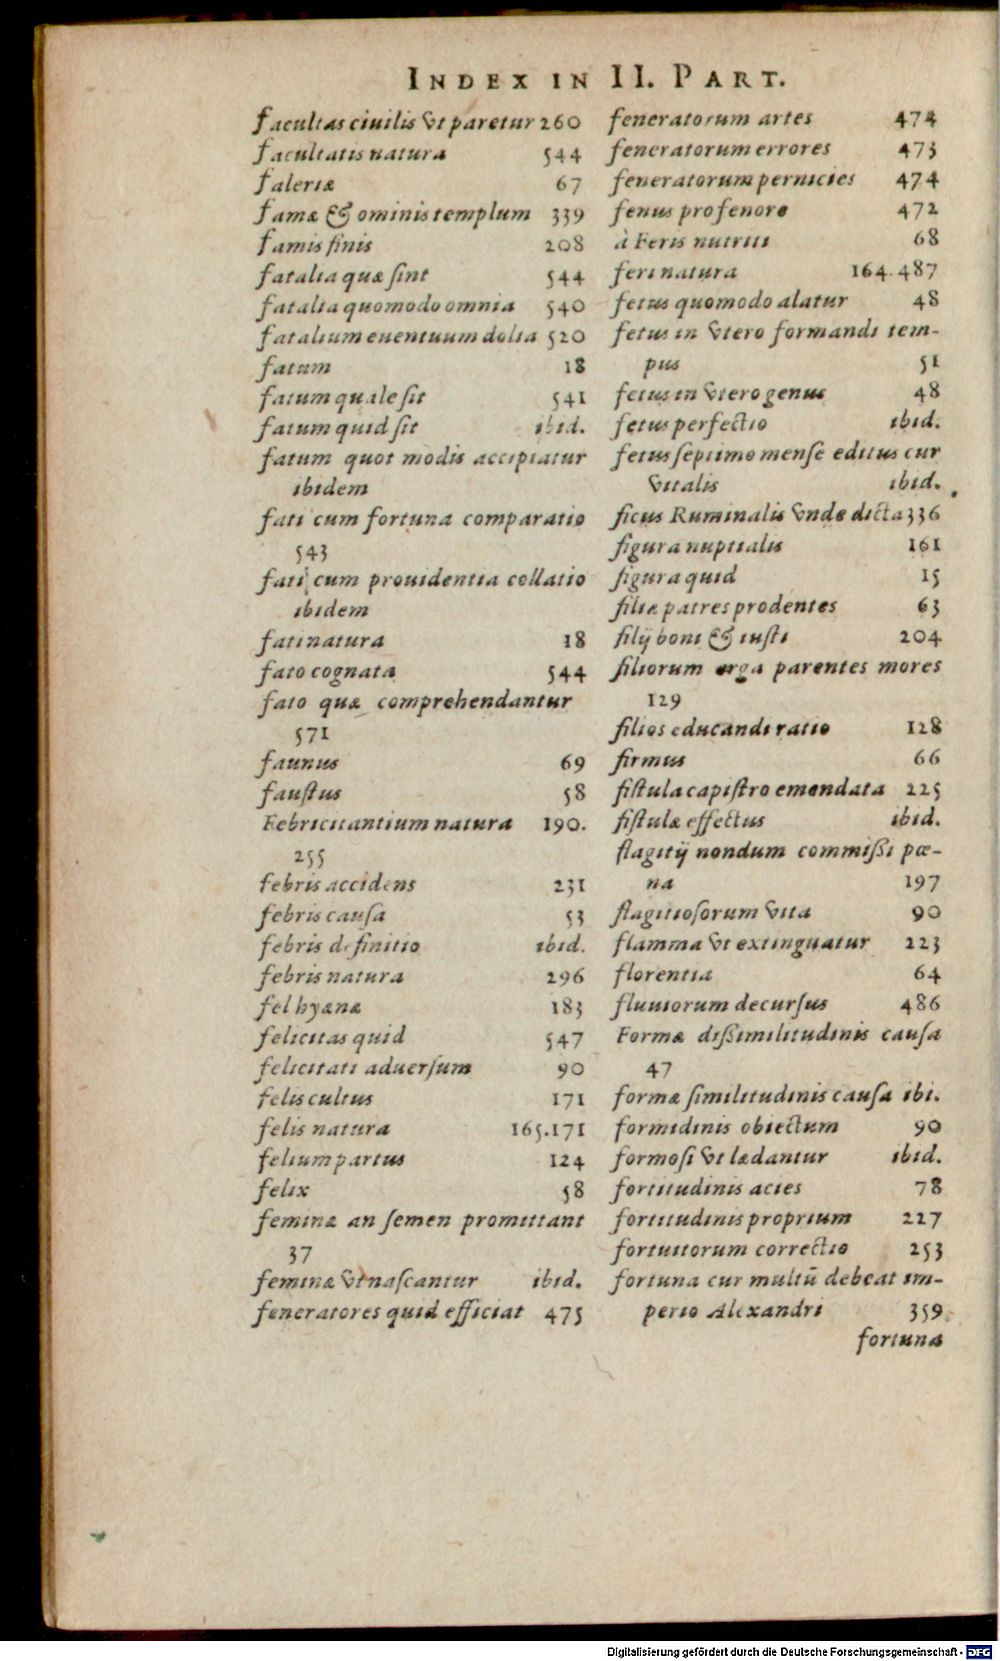 INDEX IN II. PART.
facultas ciuilis vt paretur 260
facultatis natura 544
faleriæ 67
famæ & ominis templum 339
famis finis 208
fatalia quæ sint 544
fatalia quomodo omnia 540
fatalium euentuum dolia 520
fatum 18
fatum quale sit 541
fatum quid sit ibid.
fatum quot modis accipiatur
ibidem
fati cum fortuna comparatio
543
fati cum prouidentia collatio
ibidem
fati natura 18
fato cognata 544
fato quæ comprehendantur
571
faunus 69
faustus 58
Febricitantium natura 190.
255
febris accidens 231
febris causa 53
febris definitio ibid.
febris natura 296
fel hyænæ 183
felicitas quid 547
felicitati aduersum 90
felis cultus 171
felis natura 165.171
felium partus 124
felix 58
feminæ an semen promittant
37
feminæ vt nascantur ibid.
feneratores quid efficiat 475
feneratorum artes 474
feneratorum errores 473
feneratorum pernicies 474
fenus pro fenore 472
à Feris nutriti 68
feri natura 164.487
fetus quomodo alatur 48
fetus in vtero formandi tem-
pus 51
fetus in vtero genus 48
fetus perfectio ibid.
fetus septimo mense editus cur
vitalis ibid.
ficus Ruminalis vnde dicta 336
figura nuptialis 161
figura quid 15
filiæ patres prodentes 63
filij boni & iusti 204
filiorum erga parentes mores
129
filios educandi ratio 128
firmus 66
fistula capistro emendata 225
fistulæ effectus ibid.
flagitij nondum commißi pœ-
na 197
flagitiosorum vita 90
flamma vt extinguatur 223
florentia 64
fluuiorum decursus 486
Formæ dißimilitudinis causa
47
formæ similitudinis causa ibi.
formidinis obiectum 90
formosi vt lædantur ibid.
fortitudinis acies 78
fortitudinis proprium 227
fortuitorum correctio 253
fortuna cur multū debeat im-
perio Alexandri 359
fortuna
Digitalisierung gefördert durch die Deutsche Forschungsgemeinschaft - DFG